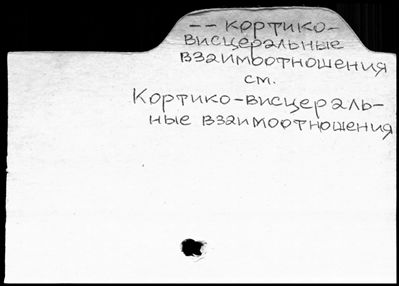 -- кортико-
висцеральные
взаимоотношения
см.
Кортико-висцераль-
ные взаимоотношения